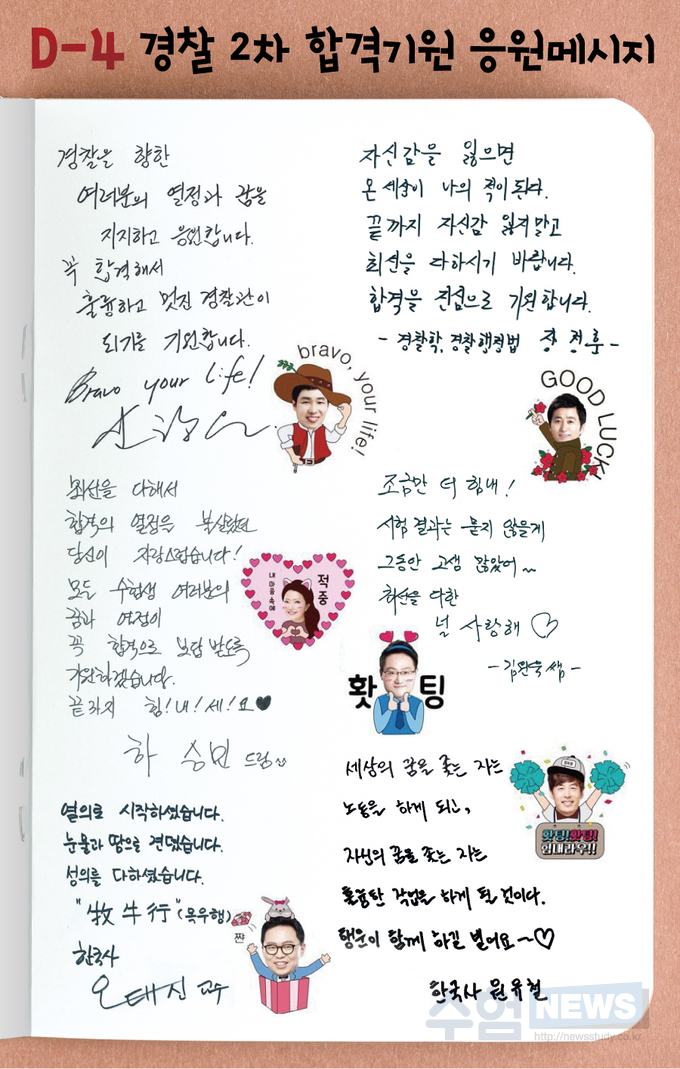 D-4 경찰 2차 합격기원 응원메시지
경찰을 향한
여러분의 열정과 꿈을
지지하고 응원합니다.
꼭 합격해서
훌륭하고 멋진 경찰관이
되기를 기원합니다.
Bravo your life!
bravo, your life!
자신감을 잃으면
온 세상이 나의 적이 된다.
끝까지 자신감 잃지 말고
최선을 다하시기 바랍니다.
합격을 진심으로 기원합니다.
- 경찰학, 경찰행정법 장정훈 -
GOOD LUCK!
최선을 다해서
합격의 열정을 불살랐던
당신이 자랑스럽습니다!
모든 수험생 여러분의
꿈과 여정이
꼭 합격으로 보답 받도록
기원하겠습니다.
끝까지 힘!내!세!요♥
하승민 드림
내 마음 속에
적중
조금만 더 힘내!
시험 결과는 묻지 않을게
그동안 고생 많았어~
최선을 다한
널 사랑해 ♡
- 김완욱쌤 -
홧팅
열의로 시작하셨습니다.
눈물과 땀으로 견뎠습니다.
성의를 다하셨습니다.
"牧牛行"(목우행)
한국사
오태진 교수
짠
세상의 꿈을 좇는 자는
노동을 하게 되고,
자신의 꿈을 좇는 자는
훌륭한 작업을 하게 될 것이다.
행운이 함께 하길 빌어요~♡
한국사 원유철
홧팅!홧팅!
힘내라우!!
수험NEWS
http://newsstudy.co.kr